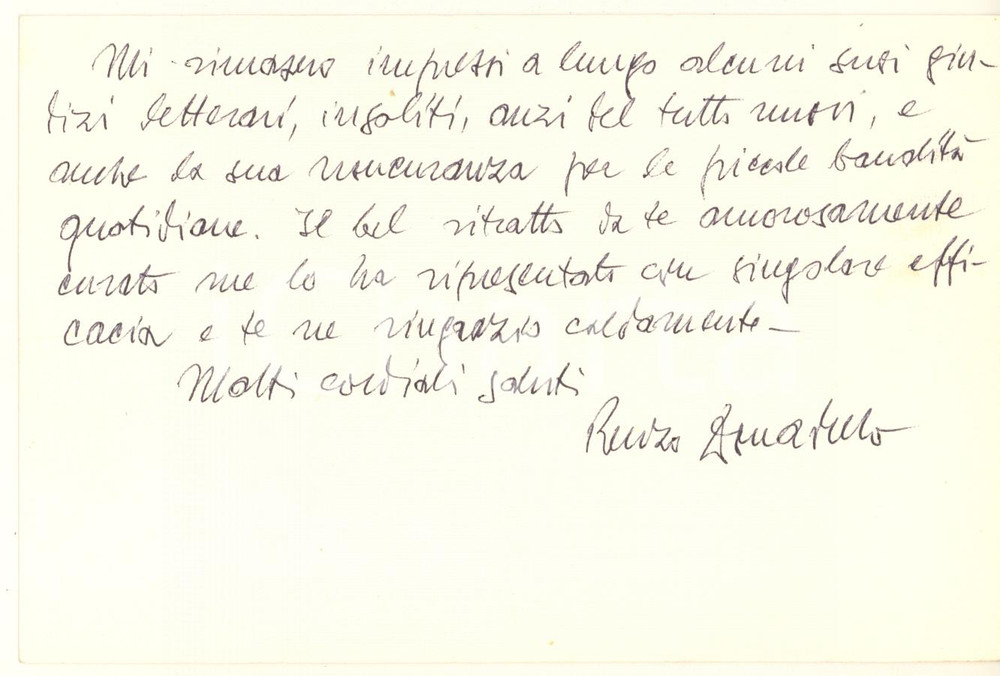 Mi rimasero impressi a lungo alcuni suoi giu-
dizi letterari, insoliti, anzi del tutto nuovi, e
anche la sua noncuranza per le piccole banalità
quotidiane. Il bel ritratto da te amorosamente
curato me lo ha ripresentato con singolare effi-
cacia e te ne ringrazio caldamente –
Molti cordiali saluti
Renzo